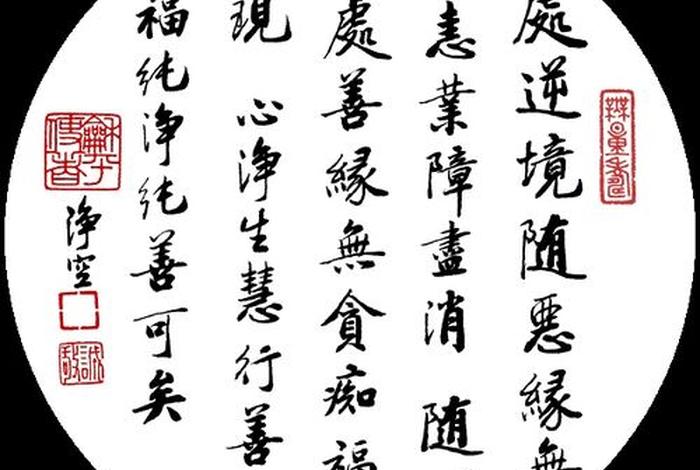 處逆境随惡緣無
恚業障盡消 随
處善緣無貪痴福
現 心淨生慧行善
福純淨純善可矣
淨空
誠敬